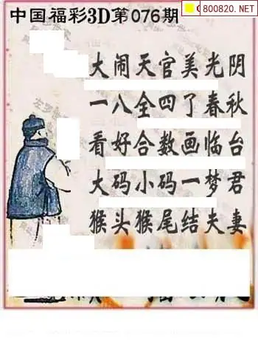 800820.NET
中国福彩3D第076期
大闹天官美光阴
一八全四了春秋
看好合数画临台
大码小码一梦君
猴头猴尾结夫妻